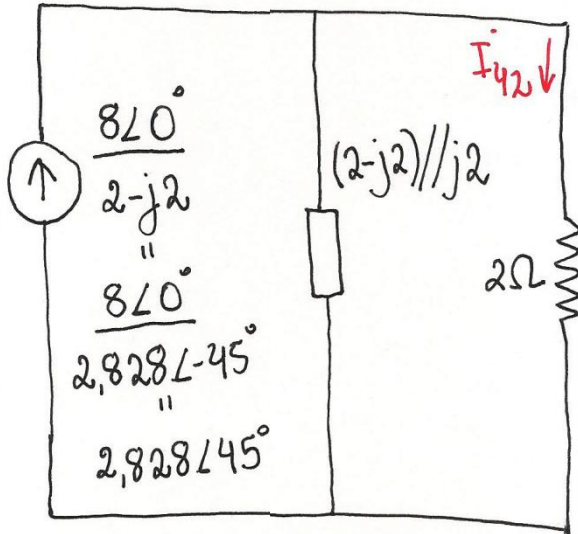 İ₄₂ ↓
8∠0°
2-j2
"
8∠0°
2,828∠-45°
"
2,828∠45°
(2-j2)//j2
2Ω